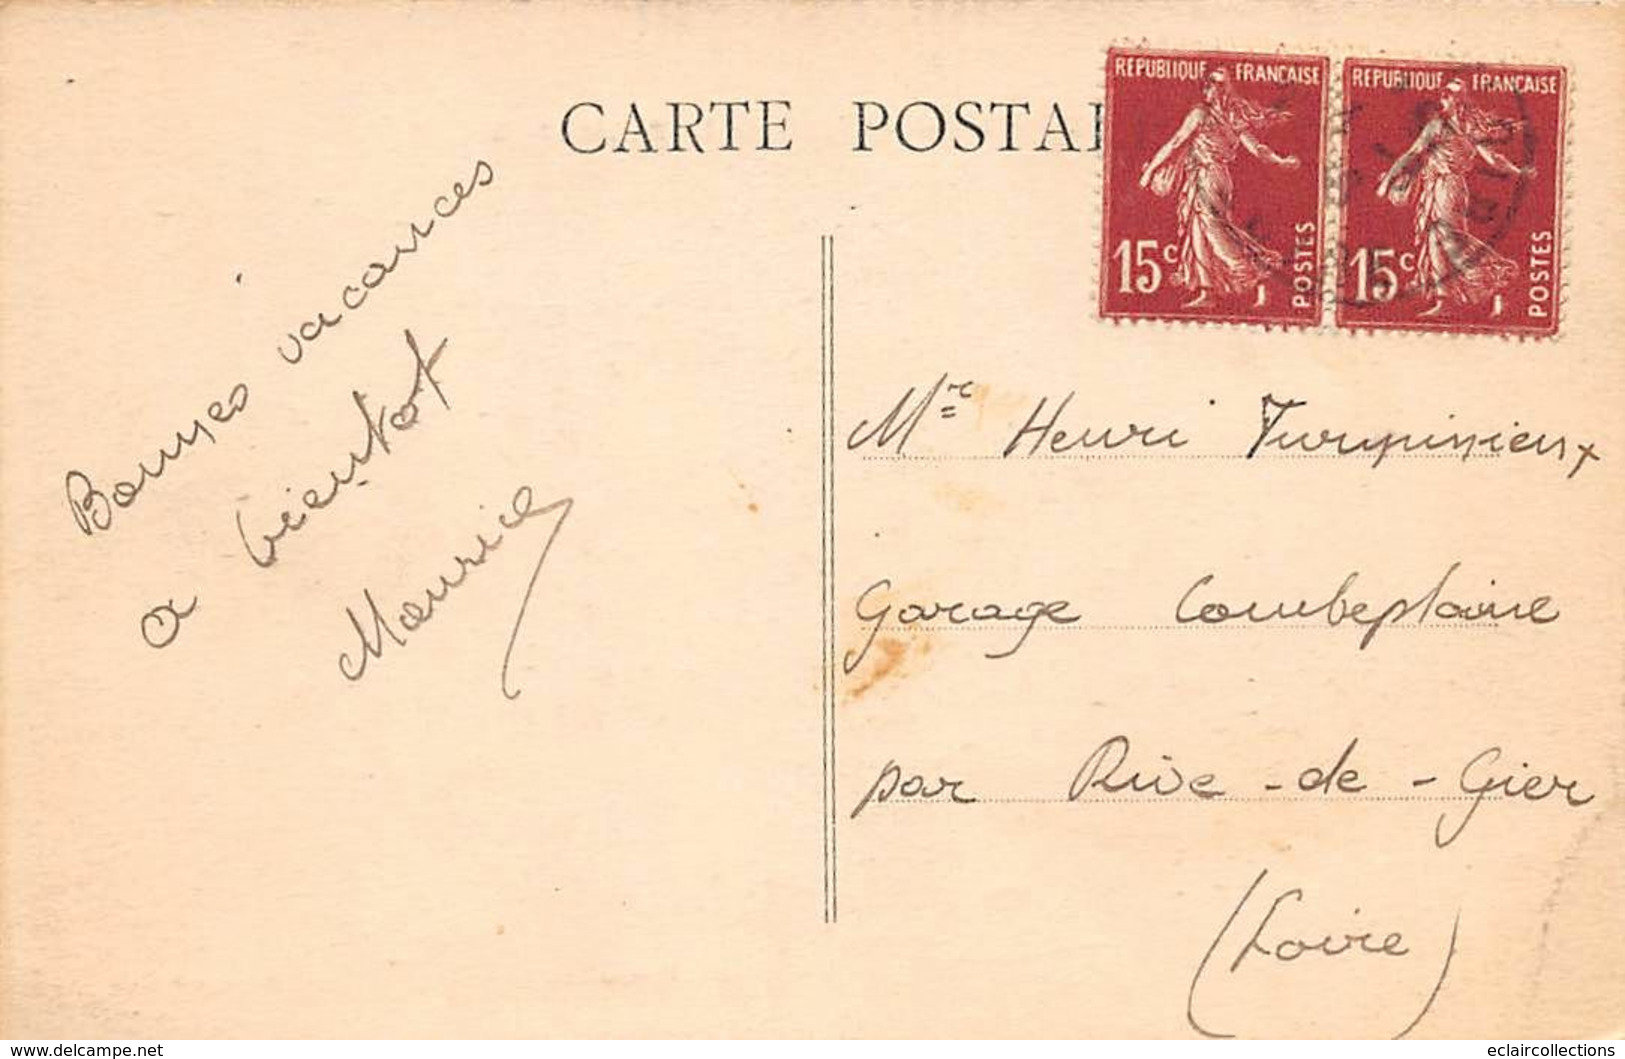 CARTE POSTAL
REPUBLIQUE FRANCAISE
15c
POSTES
REPUBLIQUE FRANCAISE
15c
POSTES
Bonnes vacances
a bientot
Maurice
Mr Henri
Garage Combeplaine
par Rive-de-Gier
(Loire)
www.delcampe.net
eclaircollections